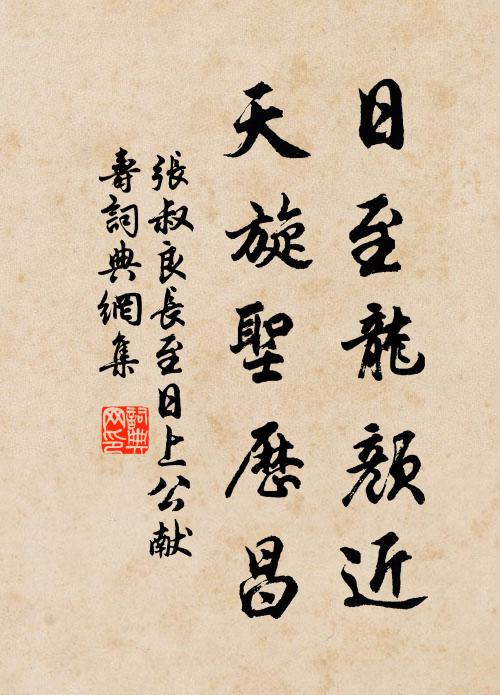 日至龍顏近
天旋聖歷昌
張叔良長至日上公献
壽詞典網集
詞典网印